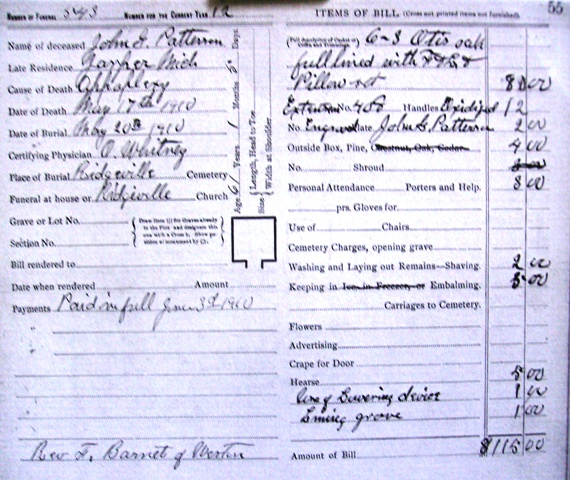 55
NUMBER OF FUNERAL 543 NUMBER FOR THE CURRENT YEAR 12
Name of deceased John G. Patterson
Late Residence Mich
Cause of Death
Date of Death May 17th 1910
Date of Burial May 20th 1910
Certifying Physician O. Whitney
Place of Burial Ridgeville Cemetery
Funeral at house or Ridgeville Church
Age 61 Years 1 Months 5 Days
Size { Length, Head to Toe
Width at Shoulder
Grave or Lot No.
Section No.
Bill rendered to
Date when rendered Amount
Payments Paid in full June 3rd 1910
Rev F. Barnet of Weston
ITEMS OF BILL (Cross out printed items not furnished).
6-3 Otis oak
full lined with
Pillow set 80 00
Extension No. 408 Handles Oxidized 12
No. Engraved Plate John G Patterson 2 00
Outside Box, Pine, Chestnut, Oak, Cedar 4 00
No. Shroud
Personal Attendance Porters and Help. 8 00
prs. Gloves for
Use of Chairs
Cemetery Charges, opening grave
Washing and Laying out Remains—Shaving. 2 00
Keeping in Ice, in Freezer, or Embalming. 5 00
Carriages to Cemetery.
Flowers
Advertising
Crape for Door
Hearse 5 00
Use of Lowering device 1 00
Lining grave 1 00
Amount of Bill $115 00